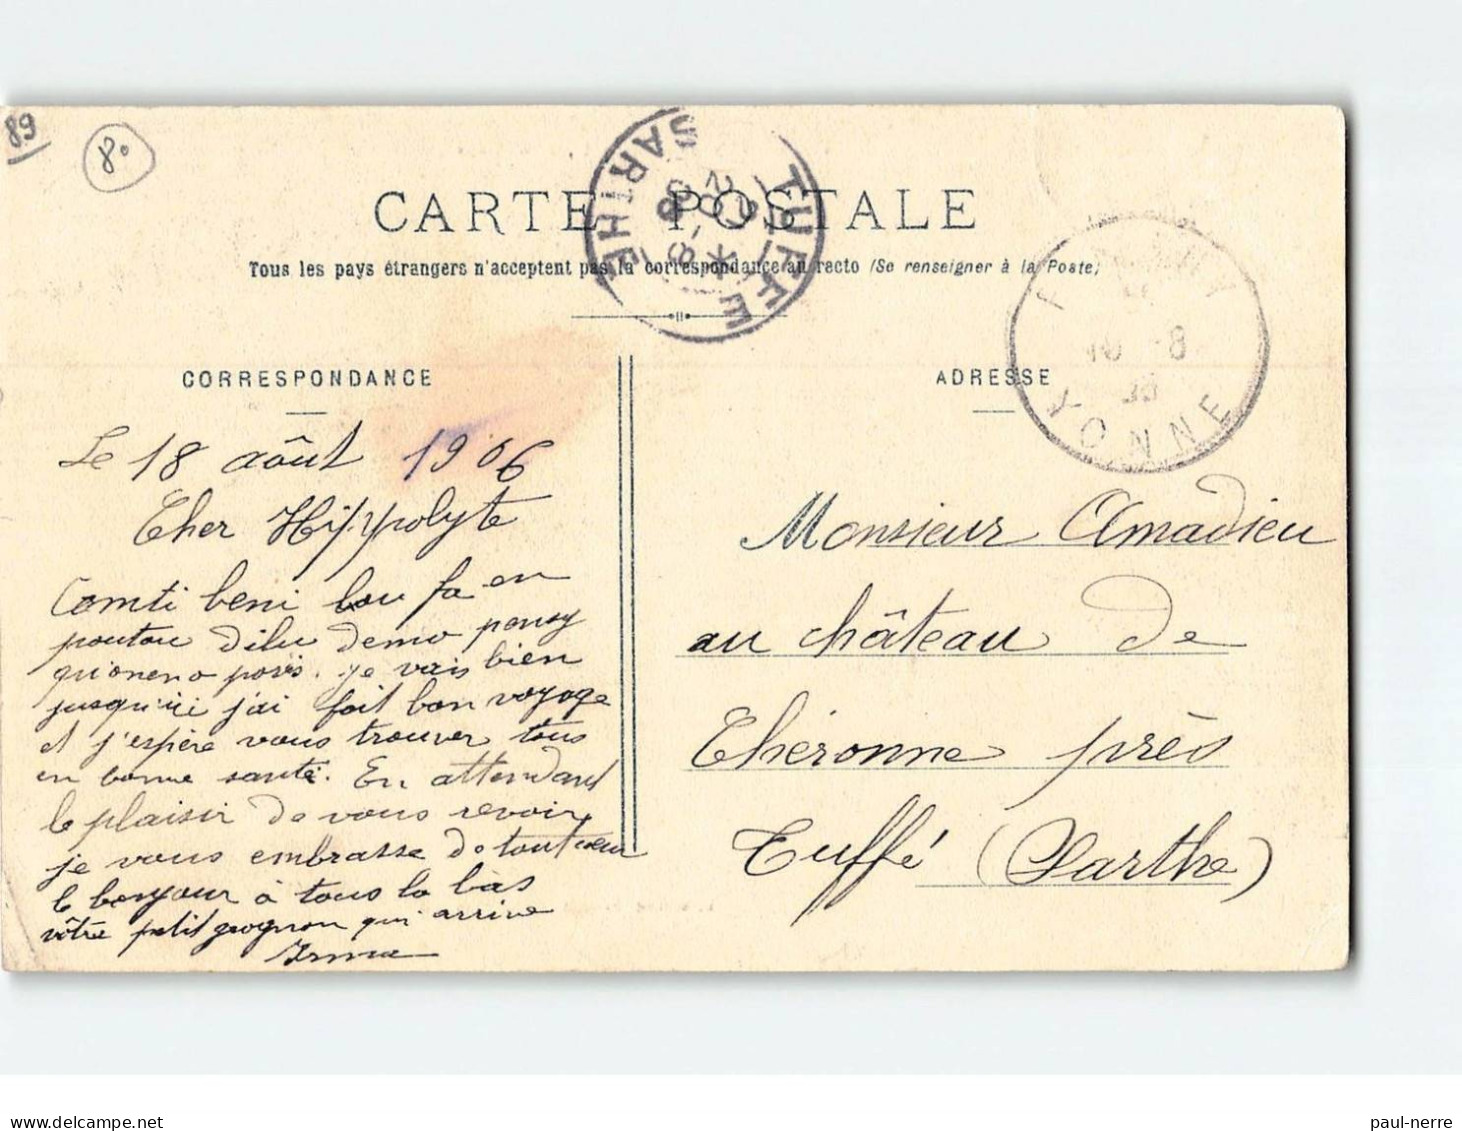 89
8.
CARTE POSTALE
Tous les pays étrangers n'acceptent pas la correspondance au recto (Se renseigner à la Poste)
TUFFÉ
SARTHE
YONNE
CORRESPONDANCE
ADRESSE
Le 18 août 1906
Cher Hippolyte
Comti beni lou fa en
poutou dilu demo pensy
qu'oneno poris. je vais bien
jusqu'ici j'ai fait bon voyage
et j'espère vous trouver tous
en bonne santé. En attendant
le plaisir de vous revoir
je vous embrasse de tout cœur
le bonjour à tous la bas
vôtre petit grognon qui arrive
Irma
Monsieur Amadieu
au château de
Chéronne près
Tuffé (Sarthe)
paul-nerre